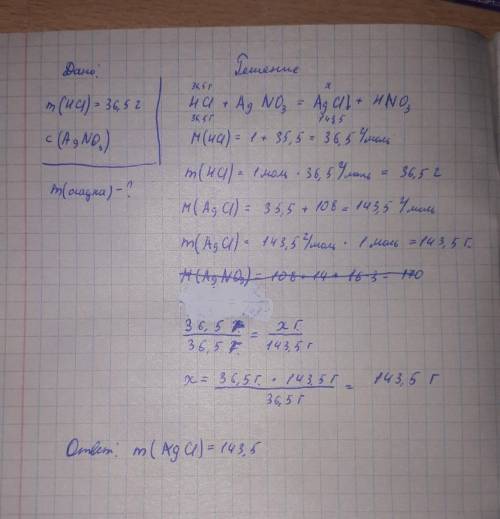 Дано:
m(HCl) = 36,5 г
с (AgNO₃)
m(осадка) - ?
Решение
36,5 г x
HCl + AgNO₃ = AgCl↓ + HNO₃
36,5 г 143,5
M(HCl) = 1 + 35,5 = 36,5 г/моль
m(HCl) = 1 моль · 36,5 г/моль = 36,5 г
M(AgCl) = 35,5 + 108 = 143,5 г/моль
m(AgCl) = 143,5 г/моль · 1 моль = 143,5 г.
M(AgNO₃) = 108 + 14 + 16·3 = 170
36,5 г / 36,5 г = x г / 143,5 г
x = 36,5 г · 143,5 г / 36,5 г = 143,5 г
Ответ: m(AgCl) = 143,5